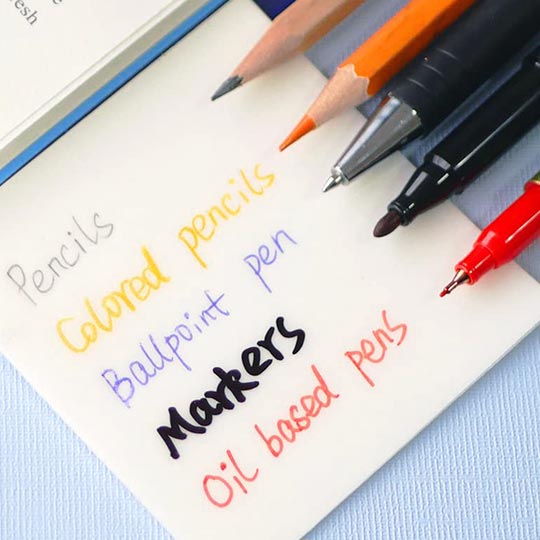 esh
Pencils
Colored pencils
Ballpoint pen
Markers
Oil based pens